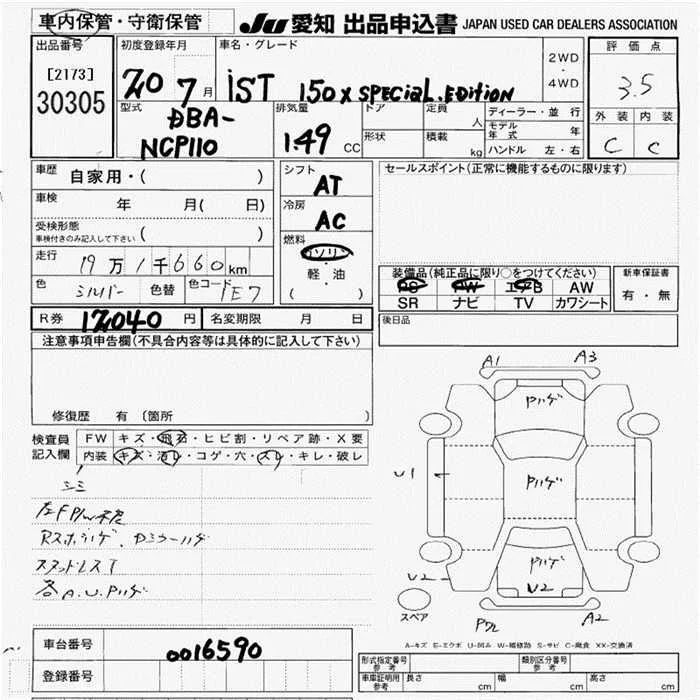 車内保管・守衛保管 JU 愛知 出品申込書 JAPAN USED CAR DEALERS ASSOCIATION
出品番号 初度登録年月 車名・グレード 評価点
[2173] 20 7月 iST 150X SPECIAL.EDITION 2WD・4WD 3.5
30305 型式 排気量 ドア 定員 人 ディーラー・並行 外装 内装
DBA- 149 CC 形状 積載 kg モデル年式 年 C C
NCP110 ハンドル 左・右
車歴 自家用・( ) シフト AT セールスポイント(正常に機能するものに限ります)
車検 年 月( 日) 冷房 AC
受検形態 ( )
車検付きのみ記入して下さい
燃料 ガソリン
走行 19万1千660km 軽・油
色 シルバー 色替 色コード 1E7 ( )
装備品(純正品に限り○をつけてください) 新車保証書
PS PW エアB AW 有・無
SR ナビ TV カワシート
R券 12040円 名変期限 月 日 後日品
注意事項申告欄(不具合内容等は具体的に記入して下さい)
修復歴 有 〔箇所
検査員記入欄 FW キズ・飛石・ヒビ割・リペア跡・X要
内装 キズ・汚レ・コゲ・穴・スレ・キレ・破レ
シミ
左F P/W不良
Rスポハゲ、Dミラーハゲ
スタッドレスT
各A.U.Pハゲ
A1 A3
Pハゲ
U1 Pハゲ
Pハゲ
U2 U2
スペア
A2
A-キズ E-エクボ U-凹み W-補修跡 S-サビ C-腐食 XX-交換済
車台番号 0016590
登録番号
型式指定番号 参考 類別区分番号 参考
車庫証明用 参考 長さ cm 幅 cm 高さ cm